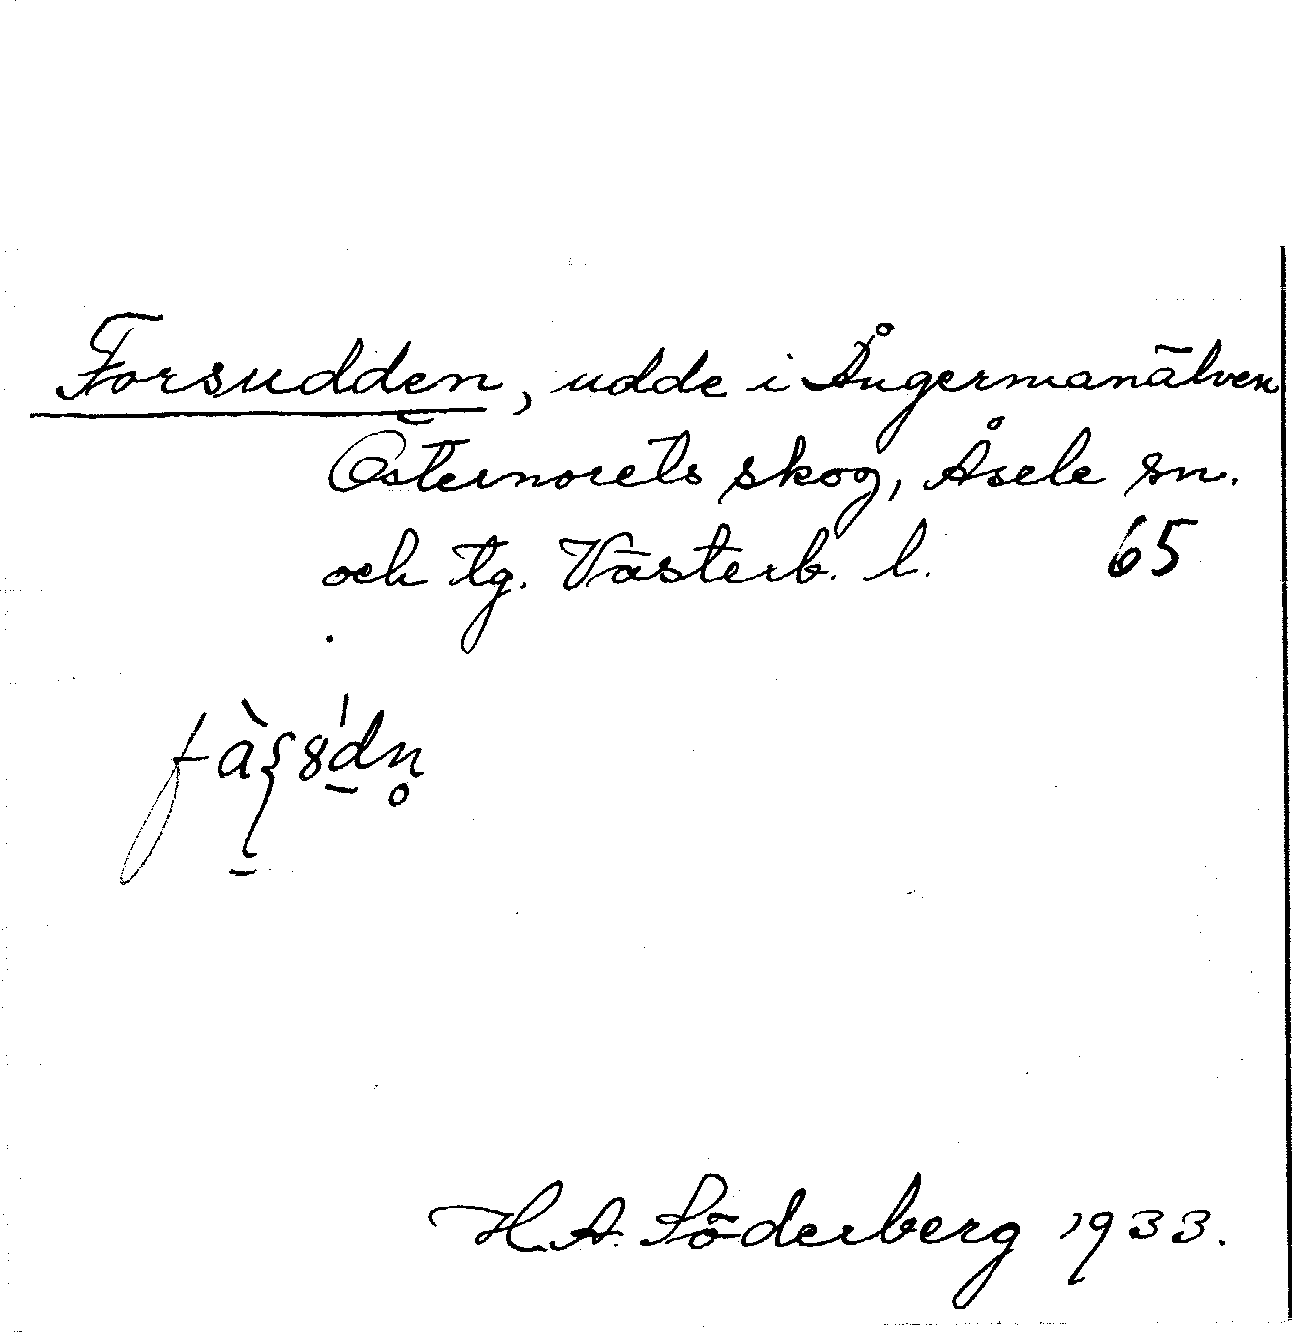 Forsudden, udde i Ångermanälven
Östernorets skog, Åsele sn.
och tg. Västerb. l. 65
H. A. Söderberg 1933.